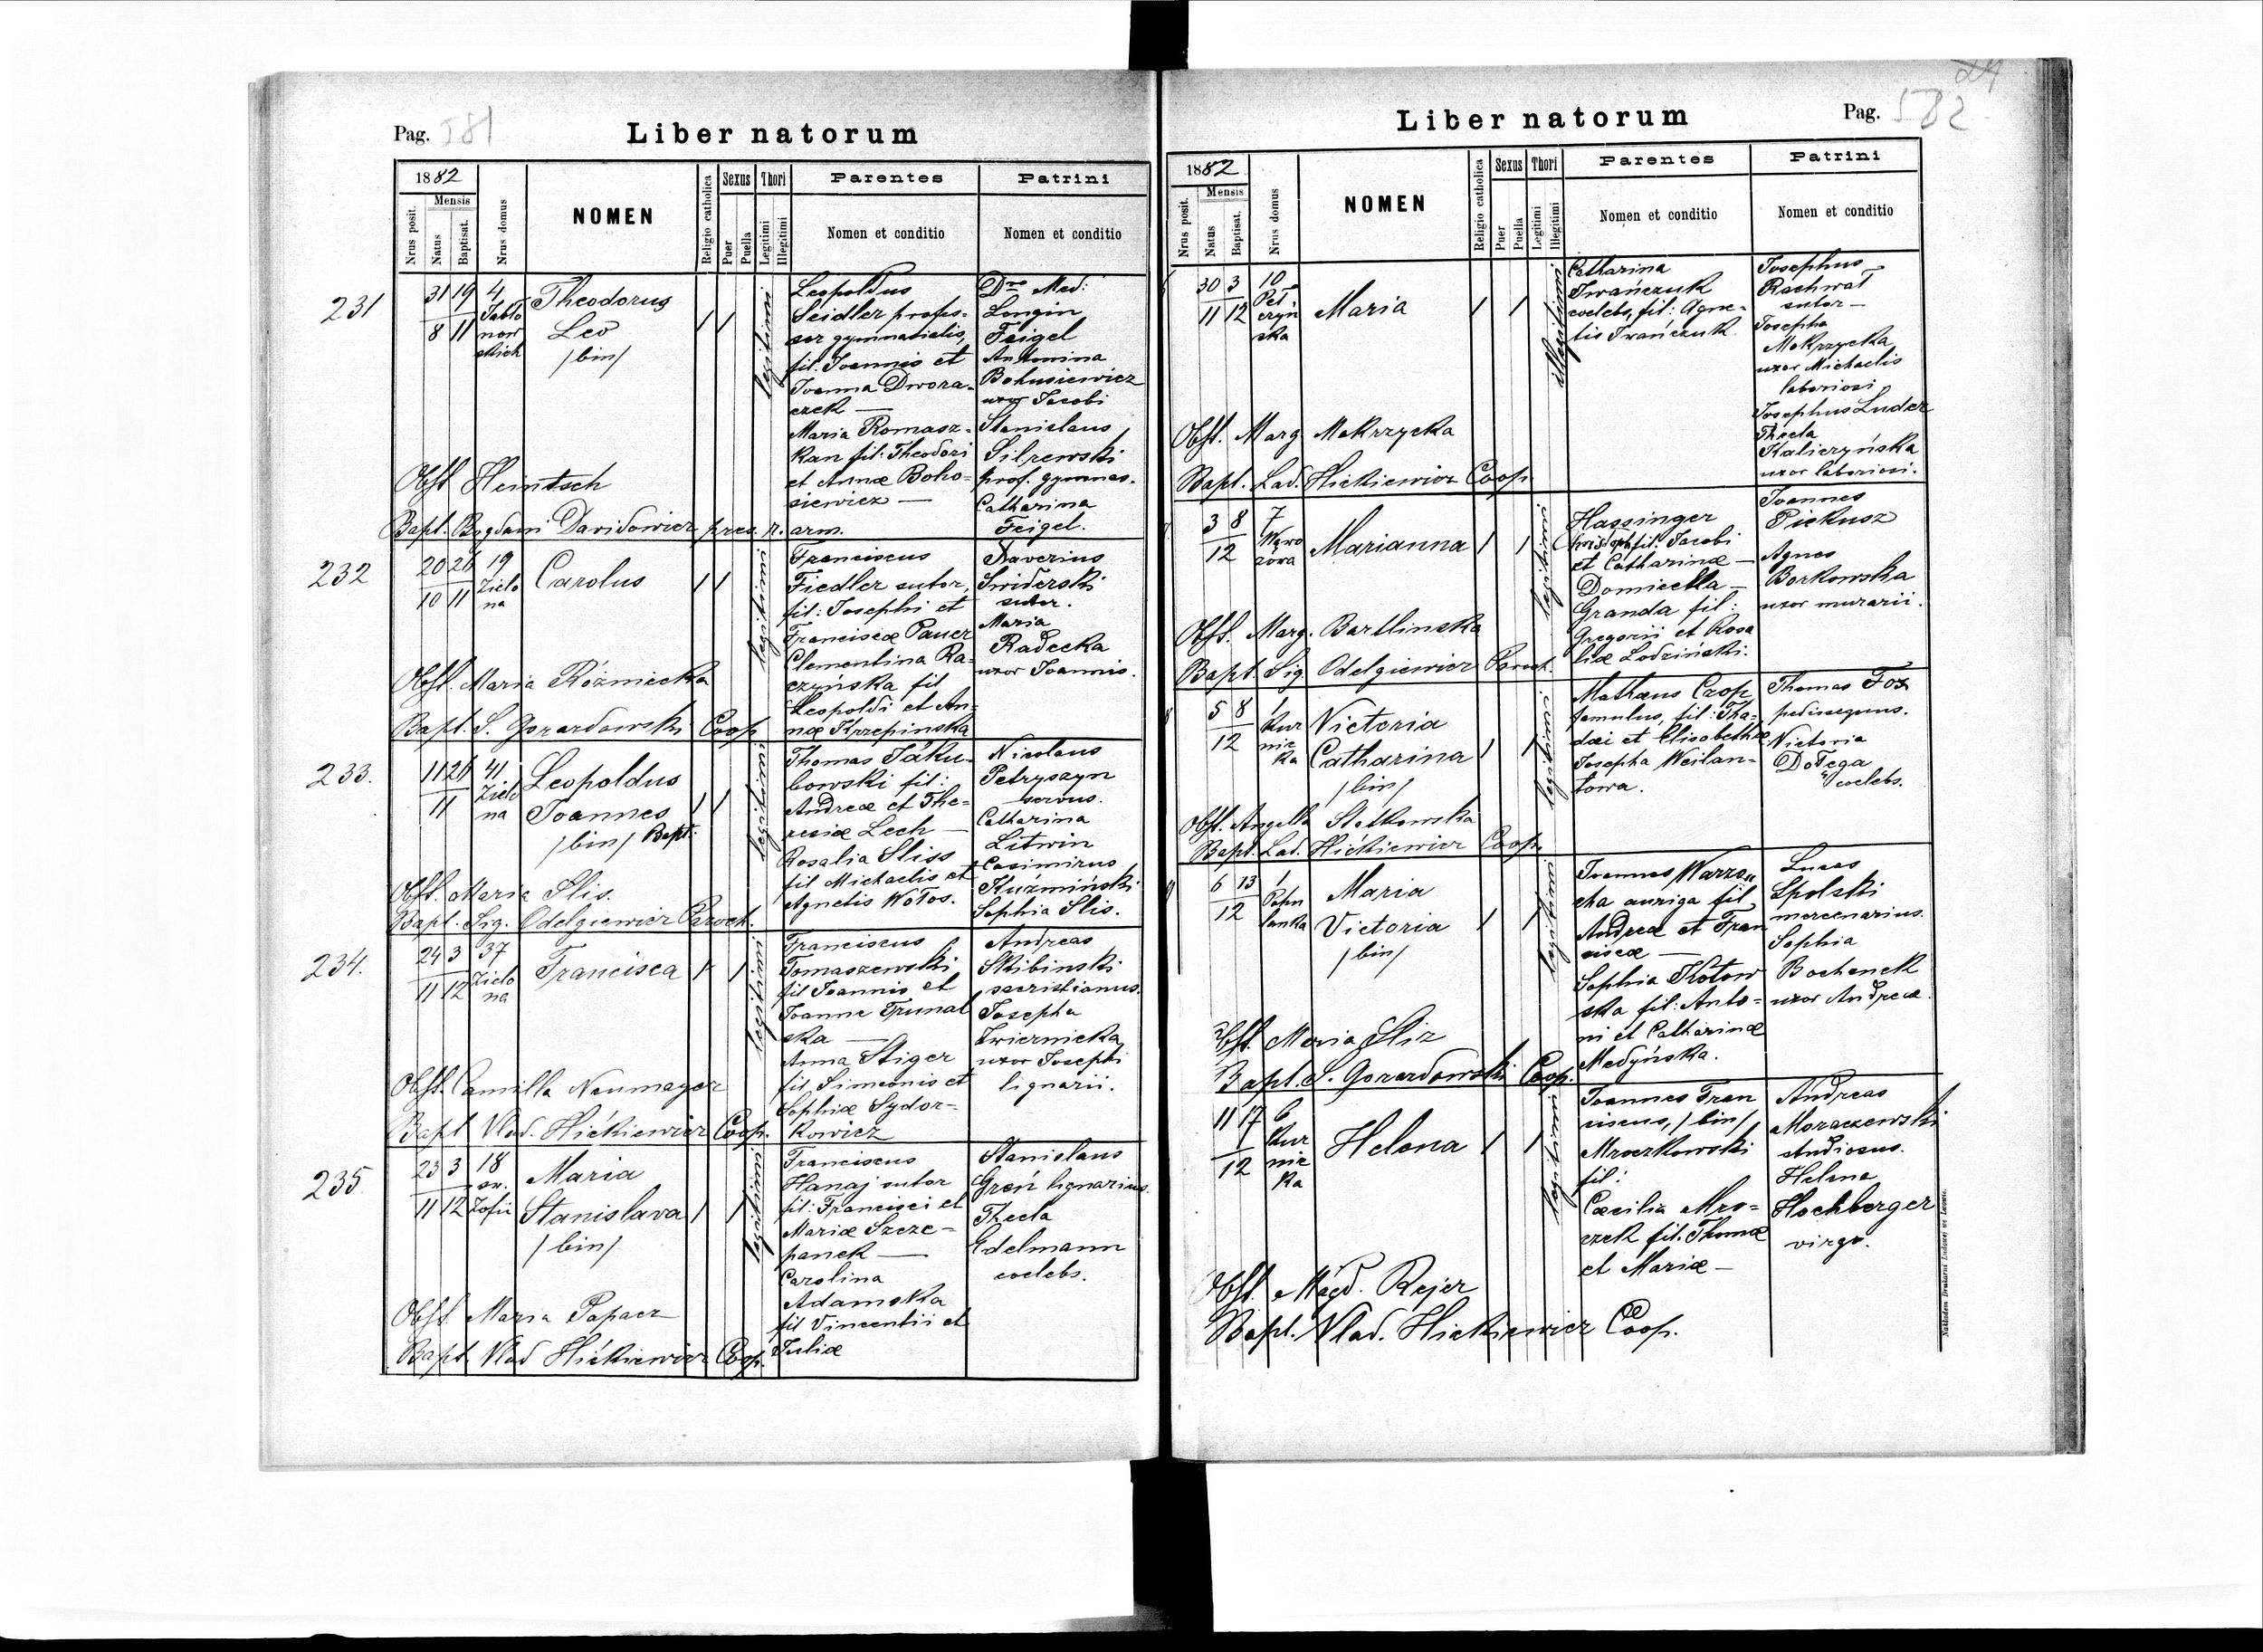 Pag. 581
Liber natorum
1882
Mensis
Nrus posit.
Natus
Baptisat.
Nrus domus
NOMEN
Religio catholica
Sexus
Puer
Puella
Thori
Legitimi
Illegitimi
Parentes
Nomen et conditio
Patrini
Nomen et conditio
231
31 19 4
8 11
Jabło
now
skich
Theodorus
Leo
/bin/
legitimi
Leopoldus
Seidler profes-
sor gymnasialis,
fil: Joannis et
Joanna Dwora-
czek —
Maria Romasz-
kan fil: Theodori
et Annæ Boho-
siewicz —
Dre Med:
Longin
Feigel
Antonina
Bohusiewicz
uxor Jacobi
Stanislaus
prof. gymnas.
Catharina
Feigel.
Obst. Heintsch
Bapt. Bogdani Davidowicz pres. r. arm.
232
20 26 19
10 11
Zielo
na
Carolus
legitimi
Franciscus
Fiedler sutor,
fil: Josephi et
Franciscæ Pauer
Clementina Ra-
czyńska fil
Leopoldi et An-
næ Krzepinska
Xaverius
Swiderski
sutor.
Maria
Radecka
uxor Joannis.
Obst. Maria Róźniecka
Bapt. S. Gorazdowski Coop
233.
11 26 41
11
Zielo
na
Leopoldus
Joannes
/bin/ Bapt:
legitimi
Thomas Jaku-
bowski fil:
Andreæ et The-
resiæ Lech —
Rosalia Sliss
fil Michaelis et
Agnetis Wołos.
Nicolaus
Petryszyn
servus.
Catharina
Litwin
Casimirus
Kuźmiński
Sophia Slis.
Obst. Maria Slis.
Bapt. Sig. Odelgiewicz Paroch.
234.
24 3 37
11 12
Zielo
na
Francisca
legitimi
Franciscus
Tomaszewski
fil Joannis et
Joanne Trunal
ska —
Anna Stiger
fil. Simeonis et
Sophiæ Sydor-
kowicz
Andreas
Skibinski
sacristianus.
Josepha
Zwiernicka
uxor Josephi
lignarii.
Obst. Camilla Neumayer
Bapt Vlad. Hićkiewicz Coop.
235
23 3 18
11 12
sw.
Zofii
Maria
Stanislava
/bin/
legitimi
Franciscus
Hanaj sutor
fil: Francisci et
Mariæ Szcze-
panek —
Carolina
Adamska
fil Vincentii et
Juliæ
Stanislaus
Greń lignarius.
Thecla
Edelmann
coelebs.
Obst. Maria Papacz
Bapt. Vlad Hićkiewicz Coop.
Liber natorum
Pag. 582
24
1882
Mensis
Nrus posit.
Natus
Baptisat.
Nrus domus
NOMEN
Religio catholica
Sexus
Puer
Puella
Thori
Legitimi
Illegitimi
Parentes
Nomen et conditio
Patrini
Nomen et conditio
30 3 10
11 12
Pet
czyń
ska
Maria
illegitimi
Catharina
Iwańczuk
coelebs, fil: Agne-
tis Iwańczuk.
Josephus
Rachwał
sutor —
Josepha
Mokrzycka
uxor Michaelis
laboriosi
Josephus Luder
Thecla
Kaliczyńska
uxor laboriosi.
Obst. Marg Mokrzycka
Bapt. Lad. Hićkiewicz Coop
3 8 7
12
Wąwo
zowa
Marianna
legitimi
Hassinger
Christoph fil: Jacobi
et Catharinæ —
Domicella —
Granda fil:
Gregorii et Rosa
liæ Lodziński.
Joannes
Piekusz
Agnes
Borkowska
uxor murarii.
Obst. Marg. Bartlinska
Bapt. Sig Odelgiewicz Paroch.
5 8 1
12
Kur
nic
ka
Victoria
Catharina
/bin/
legitimi
Mathæus Czop
famulus, fil: Tha-
dæi et Elisabethæ
Josepha Weilan-
towa.
Thomas Fox
pedissequus.
Victoria
Dołega
coelebs.
Obst. Angella Statkowska
Bapt. Lad. Hićkiewicz Coop.
6 13 1
12
Pohu
lanka
Maria
Victoria
/bin/
legitimi
Joannes Warzo
cha auriga fil
Andreæ et Fran
ciscæ —
Sophia Kotow
ska fil: Anto-
ni et Catharinæ
Medyńska.
Lucas
Spolski
mercenarius.
Sophia
Bochenek
uxor Andreæ.
Obst. Maria Sliz
Bapt. S. Gorazdowski Coop.
11 17 6
12
Kur
nic
ka
Helena
legitimi
Joannes Fran
ciscus, /bin/
Mroczkowski
fil:
Cæcilia Mro-
czek fil. Thomæ
et Mariæ —
Andreas
Moraczewski
studiosus.
Helena
Hochberger
virgo.
Obst. Magd. Rejer
Bapt. Vlad. Hićkiewicz Coop.
Nakładem Drukarni Ludowej we Lwowie.